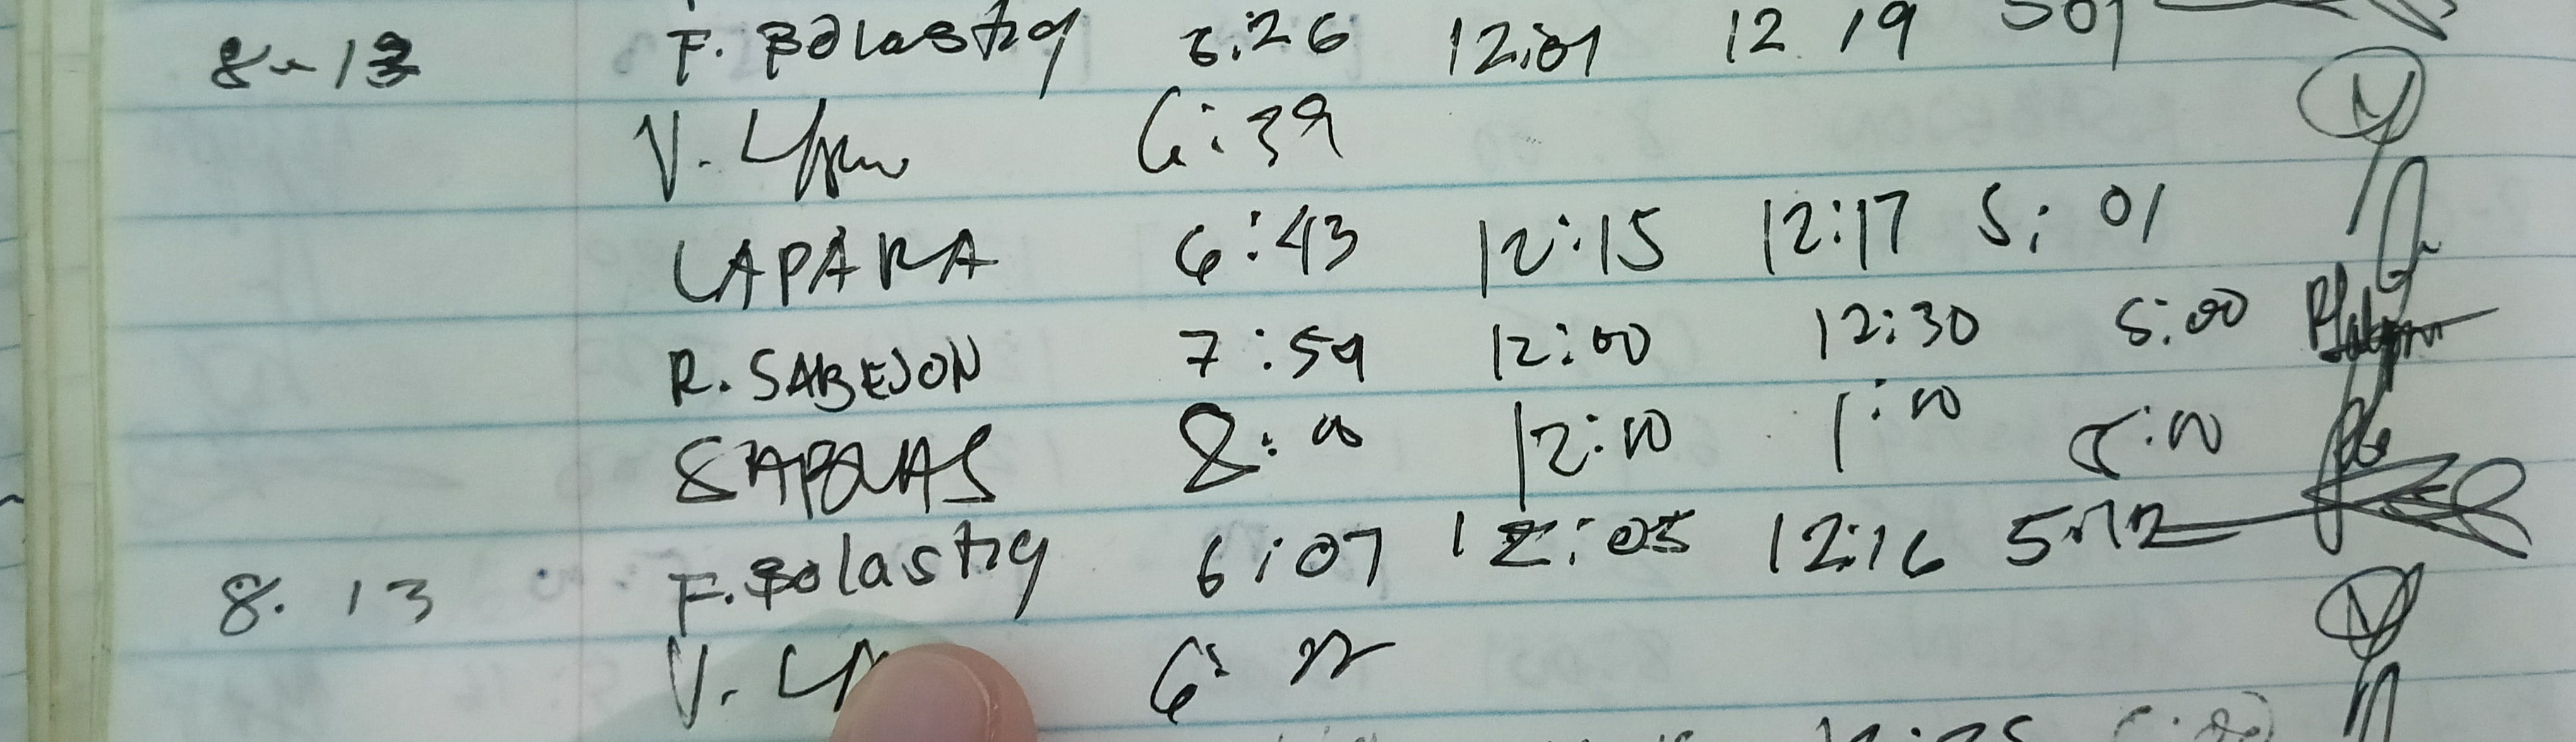 8-13 F. Bolastig 6:26 12:01 12 19 501
V. 6:39
LAPARA 6:43 12:15 12:17 5:01
R. SABEJON 7:59 12:00 12:30 5:00
8:00 12:00 1:00 5:00
8. 13 F. Bolastig 6:07 12:05 12:16 5:12
V. 6: 22